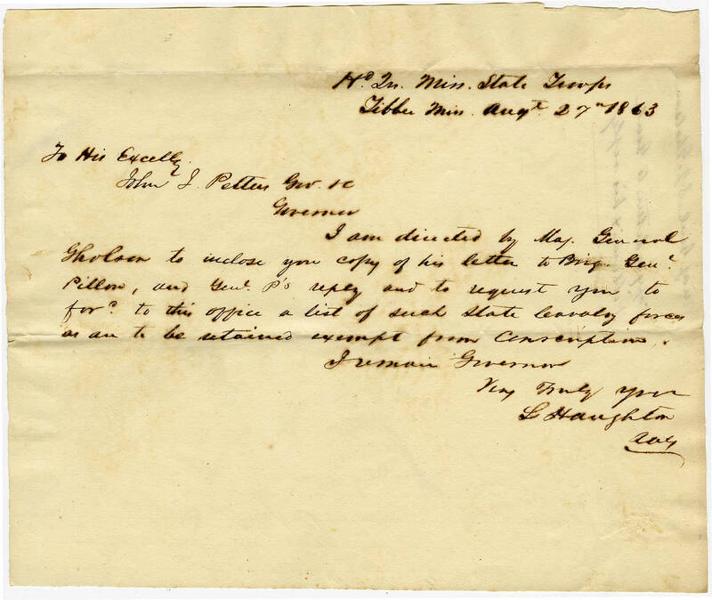 Hd Qr. Miss. State Troops
Tibbee Miss. Augt. 27th 1863
To His Excelly.
John J. Pettus Gov. &c
Governor
I am directed by Maj. General
Gholson to inclose you copy of his letter to Brig. Genl.
Pillow, and Genl. P's reply and to request you to
ford. to this office a list of such State Cavalry forces
as are to be retained exempt from Conscription.
I remain Governor
Very Truly Yours
L Haughton
AAG